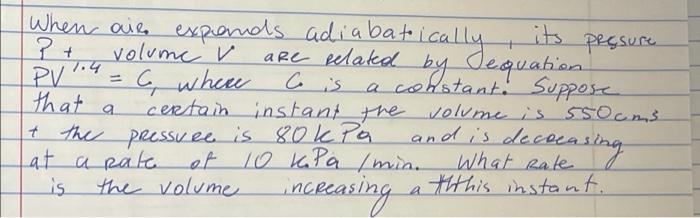 When air expands adiabatically, its pressure
P + volume V are related by equation
PV^1.4 = C, where C is a constant. Suppose
that a certain instant the volume is 550cm3
+ the pressure is 80 kPa and is decreasing
at a rate of 10 kPa /min. What Rate
is the volume increasing a this instant.